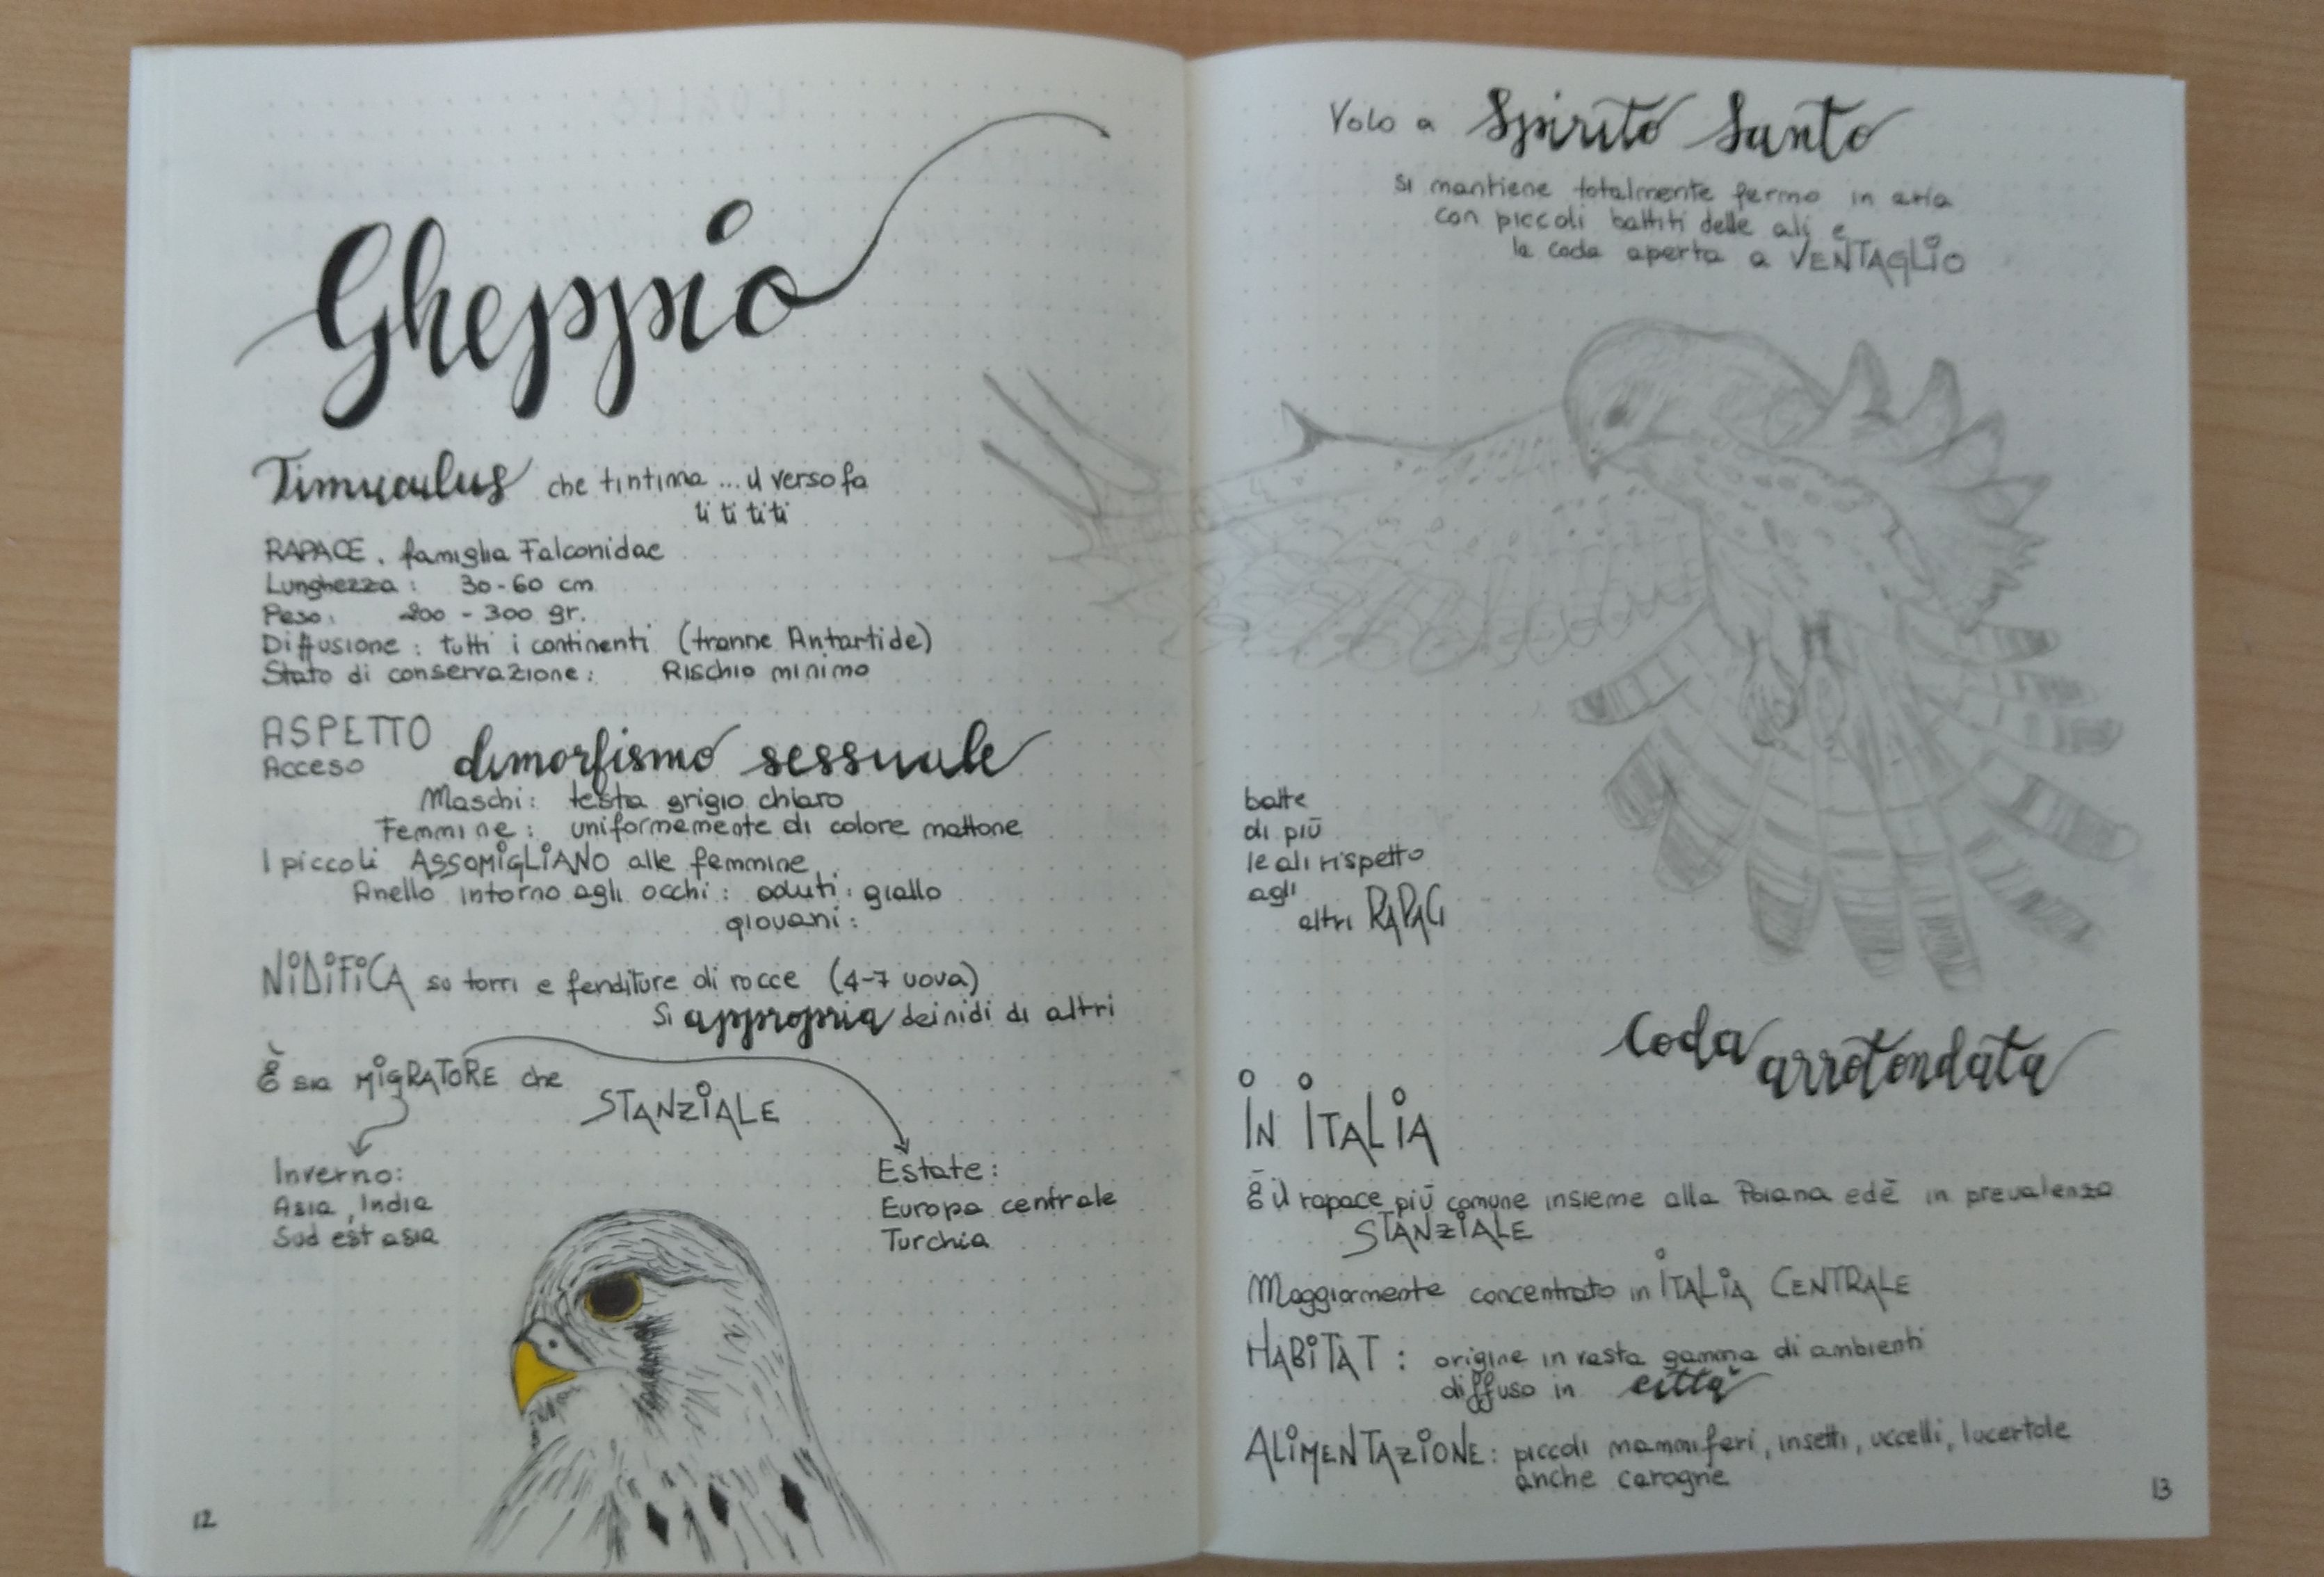 Gheppio
Timuculus che tintinna ... il verso fa
ti ti ti ti
RAPACE. famiglia Falconidae
Lunghezza: 30-60 cm
Peso: 200 - 300 gr.
Diffusione: tutti i continenti (tranne Antartide)
Stato di conservazione: Rischio minimo
ASPETTO
Acceso dimorfismo sessuale
Maschi: testa grigio chiaro
Femmine: uniformemente di colore mattone
I piccoli ASSOMIGLIANO alle femmine.
Anello intorno agli occhi: aduti: giallo
giovani:
NIDIFICA su torri e fenditure di rocce (4-7 uova)
Si appropria dei nidi di altri
È sia MIGRATORE che
STANZIALE
Inverno:
Asia, India
Sud est asia
Estate:
Europa centrale
Turchia
12
Volo a Spirito Santo
si mantiene totalmente fermo in aria
con piccoli battiti delle ali e
la coda aperta a VENTAGLIO
batte
di più
le ali rispetto
agli
altri RAPACI
Coda
arrotondata
IN ITALIA
È il rapace più comune insieme alla Poiana ed è in prevalenza
STANZIALE
Maggiormente concentrato in ITALIA CENTRALE
HABITAT: origine in vasta gamma di ambienti
diffuso in città
ALIMENTAZIONE: piccoli mammiferi, insetti, uccelli, lucertole
anche carogne
13